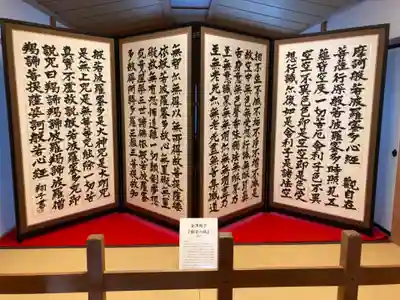 摩訶般若波羅蜜多心経 觀自在
菩薩行深般若波羅蜜多時照見五
蘊皆空度一切苦厄舎利子色不異
空空不異色色即是空空即是色受
想行識亦復如是舎利子是諸法空
相不生不滅不垢不浄不増不減是
故空中無色無受想行識無眼耳鼻
舌身意無色聲香味触法無眼界乃
至無意識界無無明亦無無明盡乃
至無老死亦無老死盡無苦集滅道
無智亦無得以無所得故菩提薩埵
依般若波羅蜜多故心無罣礙無罣
礙故無有恐怖遠離一切顛倒夢想
究竟涅槃三世諸佛依般若波羅蜜
多故得阿耨多羅三藐三菩提故知
般若波羅蜜多是大神咒是大明咒
是無上咒是無等等咒能除一切苦
真實不虚故説般若波羅蜜多咒即
説咒曰羯諦羯諦波羅羯諦波羅僧
羯諦菩提薩婆訶般若心経 翔子書
金澤翔子
『般若心経』